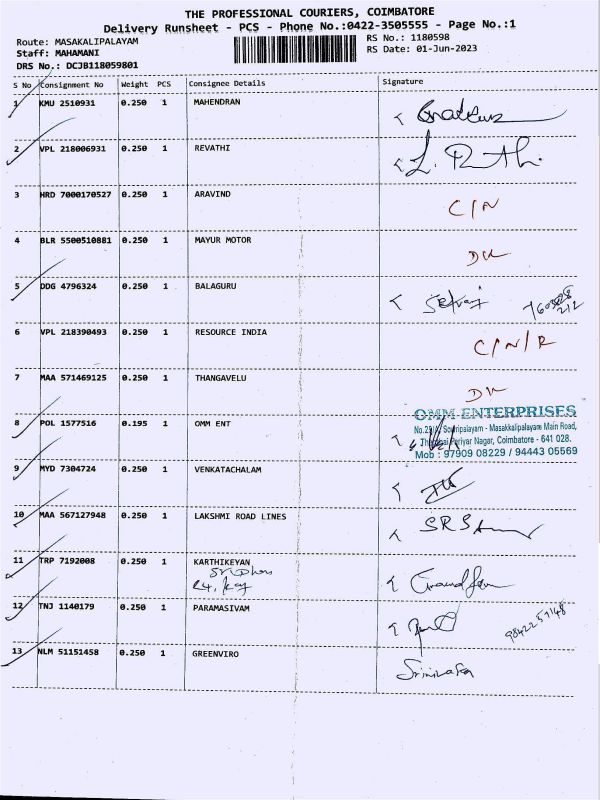 THE PROFESSIONAL COURIERS, COIMBATORE
Delivery Runsheet - PCS - Phone No.:0422-3505555 - Page No.:1
Route: MASAKALIPALAYAM
Staff: MAHAMANI
DRS No.: DCJB118059801
RS No.: 1180598
RS Date: 01-Jun-2023
S No Consignment No Weight PCS Consignee Details Signature
1 KMU 2510931 0.250 1 MAHENDRAN
2 VPL 218006931 0.250 1 REVATHI
3 HRD 7000170527 0.250 1 ARAVIND C/N
4 BLR 5500510881 0.250 1 MAYUR MOTOR
5 DDG 4796324 0.250 1 BALAGURU
6 VPL 218390493 0.250 1 RESOURCE INDIA C/N/R
7 MAA 571469125 0.250 1 THANGAVELU
OMM ENTERPRISES
8 POL 1577516 0.195 1 OMM ENT
Masakkalipalayam Main Road,
Periyar Nagar, Coimbatore - 641 028.
Mob : 97909 08229 / 94443 05569
9 MYD 7304724 0.250 1 VENKATACHALAM
10 MAA 567127948 0.250 1 LAKSHMI ROAD LINES
11 TRP 7192008 0.250 1 KARTHIKEYAN
12 TNJ 1140179 0.250 1 PARAMASIVAM
13 NLM 51151458 0.250 1 GREENVIRO